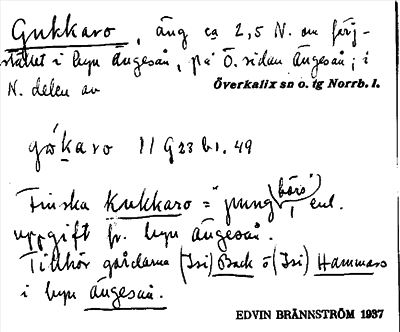 Gukkaro, äng ca 2,5 N. om färj-
stället i byn Ängesån, på Ö. sidan Ängesån; i
N. delen av Överkalix sn o. tg Norrb. l.
gòkaro 11 G23 b1. 49
Finska Kukkaro = "pung, börs" enl.
uppgift fr. byn Ängesån.
Tillhör gårdarna (Isi) Back o (Isi) Hammars
i byn Ängesån.
EDVIN BRÄNNSTRÖM 1937